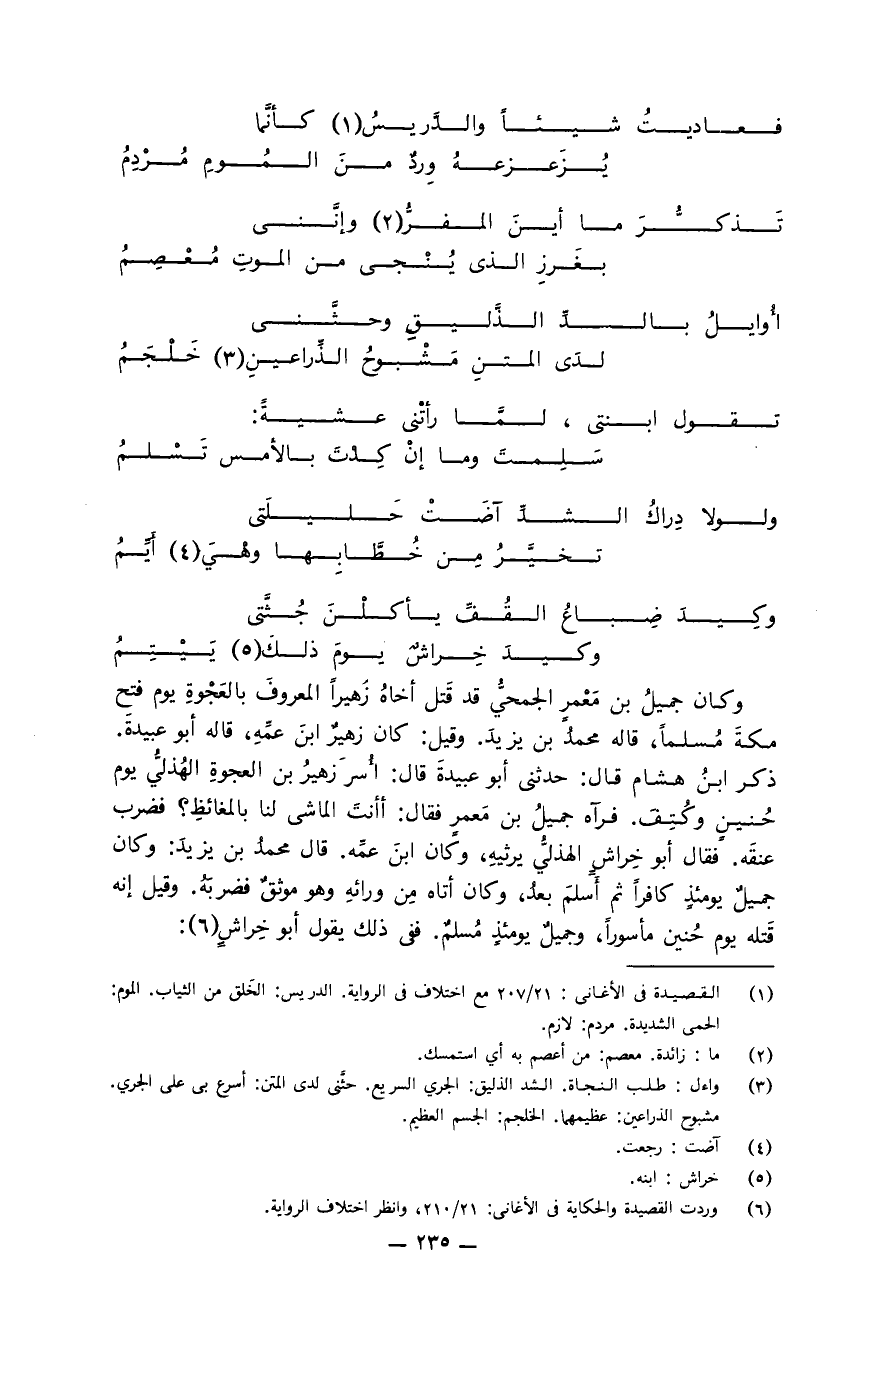 فعاديتُ شيئاً والدَّريسُ(١) كأنَّما
يُزَعزعهُ وِردٌ منَ المُومِ مُرْدِمُ
تَذكُّرَ ما أينَ المفرُّ(٢) وإنَّنى
بغَرزِ الذى يُنْجى من الموتِ مُعْصِمُ
أُوايلُ بالشدِّ الذَّليقِ وحثَّنى
لدَى المتنِ مَشْبوحُ الذِّراعينِ(٣) خَلْجَمُ
تقول ابنتى ، لمَّا رأتْنى عشيةً:
سَلِمتَ وما إنْ كِدْتَ بالأمس تَسْلمُ
ولولا دِراكُ الشدِّ آضَتْ حَليلَتى
تخيَّرُ مِن خُطَّابِها وهْيَ(٤) أيِّمُ
وكِيدَ ضِباعُ القُفِّ يأكلْنَ جُثَّتى
وكيدَ خِراشٌ يومَ ذلكَ(٥) يَيْتِمُ
وكان جميلُ بن مَعْمرٍ الجمحيُّ قد قَتل أخاهُ زُهيراً المعروفَ بالعَجْوةِ يوم فتح
مكةَ مُسلماً، قاله محمدُ بن يزيدَ. وقيل: كان زهيرٌ ابنَ عمِّهِ، قاله أبو عبيدةَ.
ذكر ابنُ هشام قال: حدثنى أبو عبيدةَ قال: أُسرَ زهيرُ بن العجوةِ الهُذليُّ يوم
حُنينٍ وكُتِفَ. فرآه جميلُ بن مَعمرٍ فقال: أأنتَ الماشى لنا بالمغائظِ؟ فضرب
عنقَه. فقال أبو خِراشٍ الهذليُّ يرثيهِ، وكان ابنَ عمِّه. قال محمدُ بن يزيدَ: وكان
جميلٌ يومئذٍ كافراً ثم أسلمَ بعدُ، وكان أتاه مِن ورائهِ وهو موثقٌ فضربهُ. وقيل إنه
قَتله يوم حُنين مأسوراً، وجميلٌ يومئذٍ مُسلمٌ. ففى ذلك يقول أبو خِراشٍ(٦):
(١) القصيدة فى الأغانى : ٢٠٧/٢١ مع اختلاف فى الرواية. الدريس: الخَلق من الثياب. الموم:
الحمى الشديدة. مردم: لازم.
(٢) ما : زائدة. معصم: من أعصم به أي استمسك.
(٣) واءل : طلب النجاة. الشد الذليق: الجري السريع. حثَّنى لدى المتن: أسرع بى على الجري.
مشبوح الذراعين: عظيمها. الخلجم: الجسم العظيم.
(٤) آضت : رجعت.
(٥) خراش : ابنه.
(٦) وردت القصيدة والحكاية فى الأغانى: ٢١٠/٢١، وانظر اختلاف الرواية.
— ٢٣٥ —